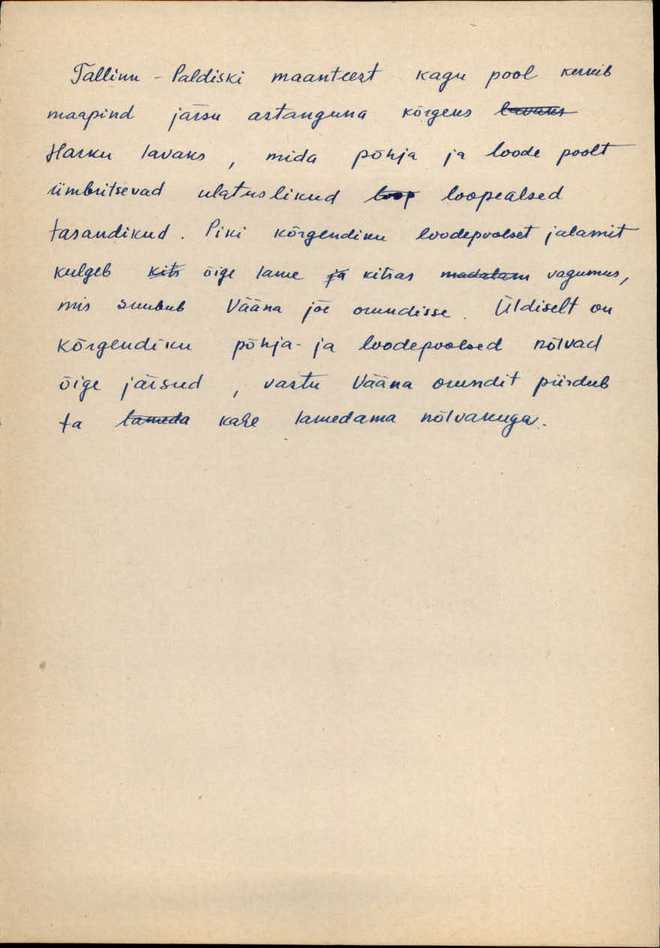 Tallinn - Paldiski maanteest kagu pool kerkib
maapind järsu astanguna kõrgeks lavaks
Harku lavaks, mida põhja ja loode poolt
ümbritsevad ulatuslikud loop loopealsed
tasandikud. Piki kõrgendiku loodepoolset jalamit
kulgeb kits õige lame ja kitsas madalam vagumus,
mis suubub Vääna jõe orundisse. Üldiselt on
kõrgendiku põhja- ja loodepoolsed nõlvad
õige järsud, vastu Vääna orundit piirdub
ta lameda kahe lamedama nõlvakuga.